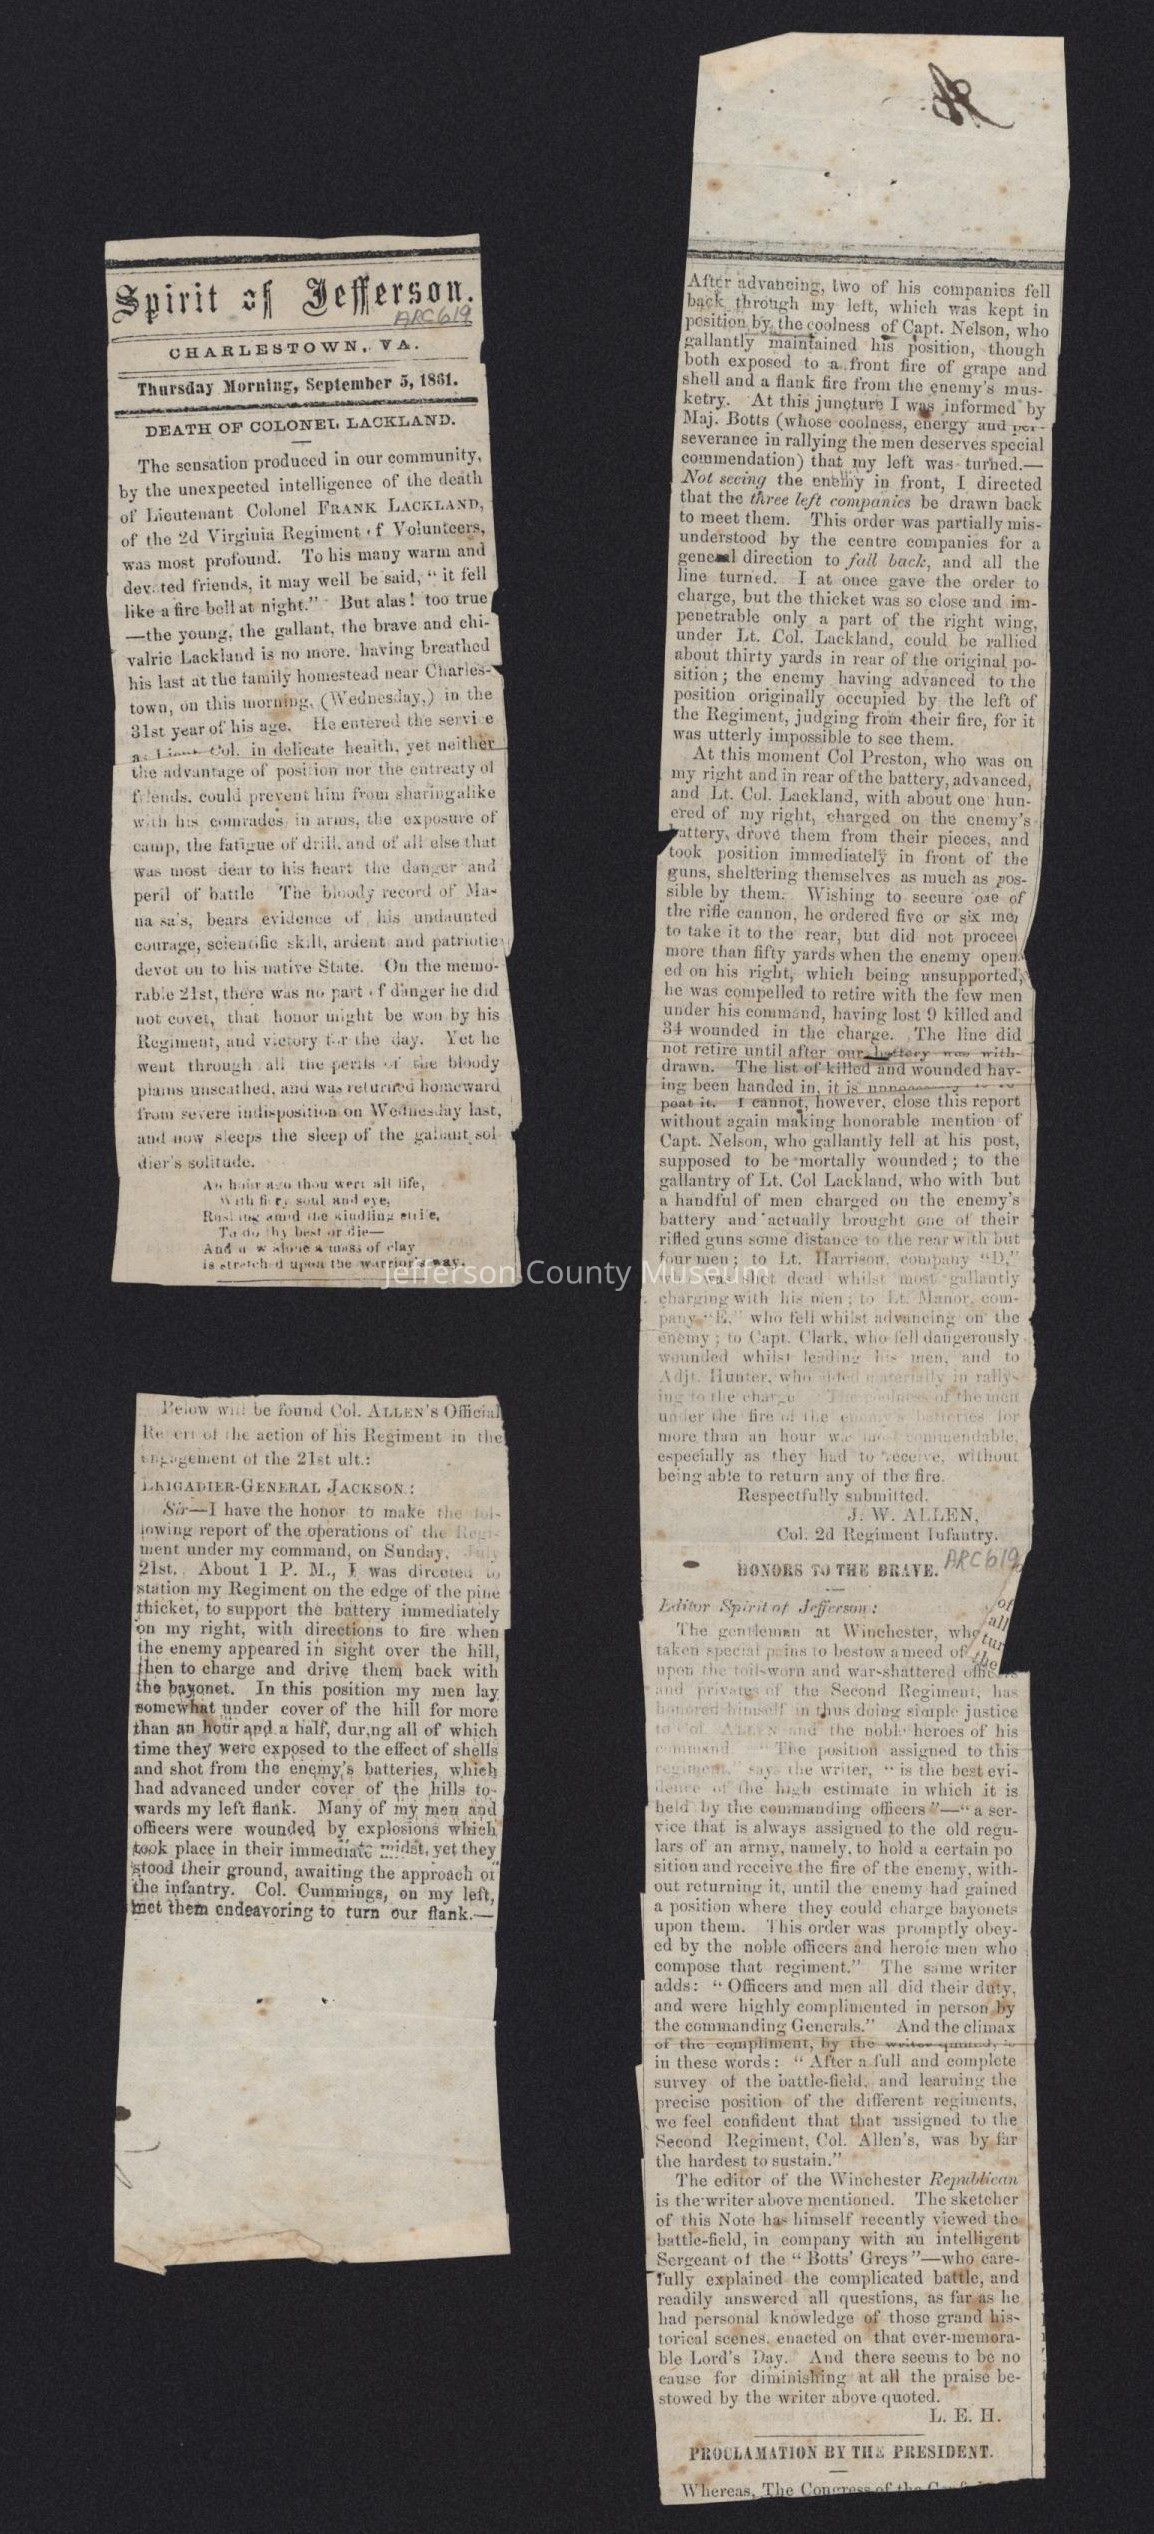 Spirit of Jefferson.
ARC619
CHARLESTOWN, VA.
Thursday Morning, September 5, 1861.
DEATH OF COLONEL LACKLAND.
The sensation produced in our community,
by the unexpected intelligence of the death
of Lieutenant Colonel FRANK LACKLAND,
of the 2d Virginia Regiment of Volunteers,
was most profound. To his many warm and
devoted friends, it may well be said, “ it fell
like a fire bell at night.” But alas! too true
—the young, the gallant, the brave and chi-
valric Lackland is no more, having breathed
his last at the family homestead near Charles-
town, on this morning, (Wednesday,) in the
31st year of his age. He entered the service
as Lieut Col. in delicate health, yet neither
the advantage of position nor the entreaty of
friends, could prevent him from sharing alike
with his comrades in arms, the exposure of
camp, the fatigue of drill, and of all else that
was most dear to his heart the danger and
peril of battle The bloody record of Ma-
na sa's, bears evidence of his undaunted
courage, scientific skill, ardent and patriotic
devot on to his native State. On the memo-
rable 21st, there was no part of danger he did
not covet, that honor might be won by his
Regiment, and victory for the day. Yet he
went through all the perils of the bloody
plains unscathed, and was returned homeward
from severe indisposition on Wednesday last,
and now sleeps the sleep of the gallant sol
dier's solitude.
An hour ago thou wert all life,
With fiery soul and eye,
Rushing amid the kindling strife,
To do thy best or die—
And now alone a mass of clay
is stretched upon the warrior's way.
Below will be found Col. ALLEN'S Official
Report of the action of his Regiment in the
engagement of the 21st ult.:
BRIGADIER-GENERAL JACKSON:
Sir—I have the honor to make the fol-
lowing report of the operations of the Regi-
ment under my command, on Sunday, July
21st. About 1 P. M., I was directed to
station my Regiment on the edge of the pine
thicket, to support the battery immediately
on my right, with directions to fire when
the enemy appeared in sight over the hill,
then to charge and drive them back with
the bayonet. In this position my men lay
somewhat under cover of the hill for more
than an hour and a half, during all of which
time they were exposed to the effect of shells
and shot from the enemy's batteries, which
had advanced under cover of the hills to-
wards my left flank. Many of my men and
officers were wounded by explosions which
took place in their immediate midst, yet they
stood their ground, awaiting the approach of
the infantry. Col. Cummings, on my left,
met them endeavoring to turn our flank.—
After advancing, two of his companies fell
back through my left, which was kept in
position by the coolness of Capt. Nelson, who
gallantly maintained his position, though
both exposed to a front fire of grape and
shell and a flank fire from the enemy's mus-
ketry. At this juncture I was informed by
Maj. Botts (whose coolness, energy and per-
severance in rallying the men deserves special
commendation) that my left was turned.—
Not seeing the enemy in front, I directed
that the three left companies be drawn back
to meet them. This order was partially mis-
understood by the centre companies for a
general direction to fall back, and all the
line turned. I at once gave the order to
charge, but the thicket was so close and im-
penetrable only a part of the right wing,
under Lt. Col. Lackland, could be rallied
about thirty yards in rear of the original po-
sition; the enemy having advanced to the
position originally occupied by the left of
the Regiment, judging from their fire, for it
was utterly impossible to see them.
At this moment Col Preston, who was on
my right and in rear of the battery, advanced,
and Lt. Col. Lackland, with about one hun-
ered of my right, charged on the enemy's
battery, drove them from their pieces, and
took position immediately in front of the
guns, sheltering themselves as much as pos-
sible by them. Wishing to secure one of
the rifle cannon, he ordered five or six men
to take it to the rear, but did not proceed
more than fifty yards when the enemy open-
ed on his right, which being unsupported,
he was compelled to retire with the few men
under his command, having lost 9 killed and
34 wounded in the charge. The line did
not retire until after our battery was with-
drawn. The list of killed and wounded hav-
ing been handed in, it is unnecessary to re-
peat it. I cannot, however, close this report
without again making honorable mention of
Capt. Nelson, who gallantly fell at his post,
supposed to be mortally wounded; to the
gallantry of Lt. Col Lackland, who with but
a handful of men charged on the enemy's
battery and actually brought one of their
rifled guns some distance to the rear with but
four men; to Lt. Harrison, company “D,”
who was shot dead whilst most gallantly
charging with his men; to Lt. Manor, com-
pany “E,” who fell whilst advancing on the
enemy; to Capt. Clark, who fell dangerously
wounded whilst leading his men, and to
Adjt. Hunter, who aided materially in rally-
ing to the charge The coolness of the men
under the fire of the enemy's batteries for
more than an hour was most commendable,
especially as they had to receive, without
being able to return any of the fire.
Respectfully submitted,
J. W. ALLEN,
Col. 2d Regiment Infantry.
ARC619
HONORS TO THE BRAVE.
Editor Spirit of Jefferson:
The gentleman at Winchester, who
taken special pains to bestow a meed of
upon the toil-worn and war-shattered officers
and privates of the Second Regiment, has
honored himself in thus doing simple justice
to Col. ALLEN and the noble heroes of his
command “The position assigned to this
regiment,” says the writer, “is the best evi-
dence of the high estimate in which it is
held by the commanding officers”—“a ser-
vice that is always assigned to the old regu-
lars of an army, namely, to hold a certain po
sition and receive the fire of the enemy, with-
out returning it, until the enemy had gained
a position where they could charge bayonets
upon them. This order was promptly obey-
ed by the noble officers and heroic men who
compose that regiment.” The same writer
adds: “Officers and men all did their duty,
and were highly complimented in person by
the commanding Generals.” And the climax
of the compliment, by the writer quoted, is
in these words: “After a full and complete
survey of the battle-field, and learning the
precise position of the different regiments,
we feel confident that that assigned to the
Second Regiment, Col. Allen's, was by far
the hardest to sustain.”
The editor of the Winchester Republican
is the writer above mentioned. The sketcher
of this Note has himself recently viewed the
battle-field, in company with an intelligent
Sergeant of the “Botts' Greys”—who care-
fully explained the complicated battle, and
readily answered all questions, as far as he
had personal knowledge of those grand his-
torical scenes, enacted on that ever-memora-
ble Lord's Day. And there seems to be no
cause for diminishing at all the praise be-
stowed by the writer above quoted.
L. E. H.
PROCLAMATION BY THE PRESIDENT.
Whereas, The Congress of the
of
all
tur
the
Jefferson County Museum